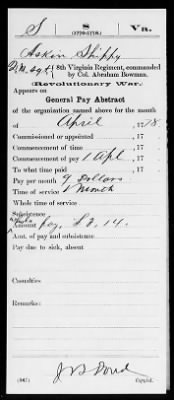 S 8 Va.
(1776-1778.)
Askin Shippy
Q.M. Sgt. 8th Virginia Regiment, commanded
by Col. Abraham Bowman.
(Revolutionary War.)
Appears on
General Pay Abstract
of the organization named above for the month
of April, 1778
Commissioned or appointed , 17
Commencement of time , 17
Commencement of pay 1 Apl , 17
To what time paid , 17
Pay per month 9 Dollars
Time of service 1 Month
Whole time of service
Subsistence
Amount pay, £2.14.
Amt. of pay and subsistence
Pay due to sick, absent
Casualties
Remarks:
Copyist.